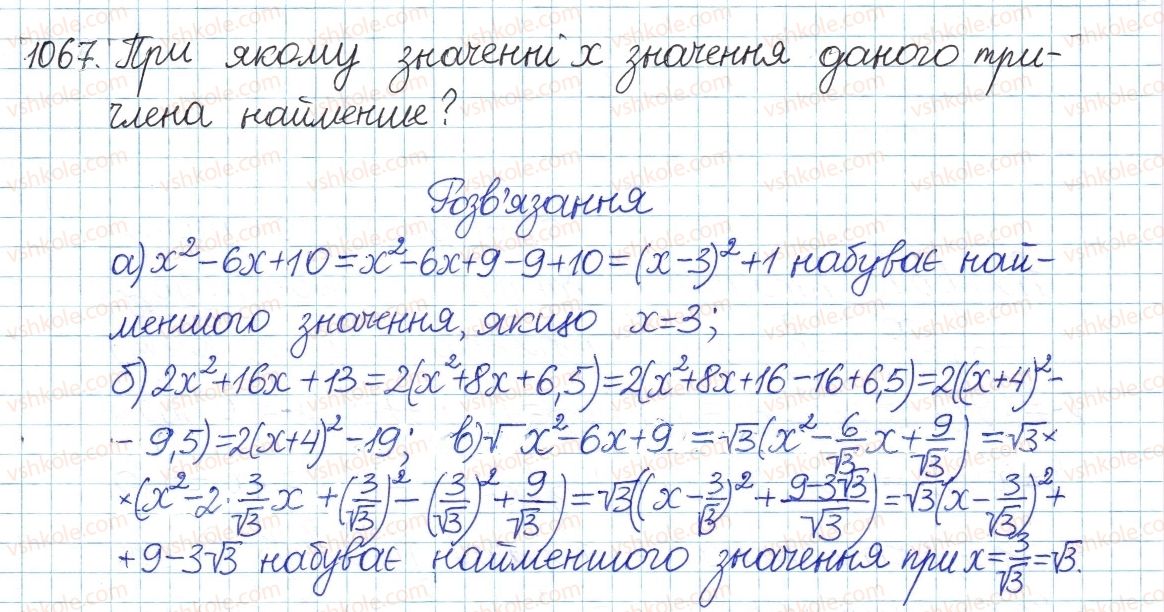 1067. При якому значенні x значення даного три-
члена найменше?
Розв'язання
а) x² - 6x + 10 = x² - 6x + 9 - 9 + 10 = (x - 3)² + 1 набуває най-
меншого значення, якщо x = 3;
б) 2x² + 16x + 13 = 2(x² + 8x + 6,5) = 2(x² + 8x + 16 - 16 + 6,5) = 2((x + 4)² -
- 9,5) = 2(x + 4)² - 19; в) √ x² - 6x + 9 = √3(x² - 6/√3 x + 9/√3) = √3 ×
× (x² - 2 · 3/√3 x + (3/√3)² - (3/√3)² + 9/√3) = √3((x - 3/√3)² + (9 - 3√3)/√3) = √3(x - 3/√3)² +
+ 9 - 3√3 набуває найменшого значення при x = 3/√3 = √3.